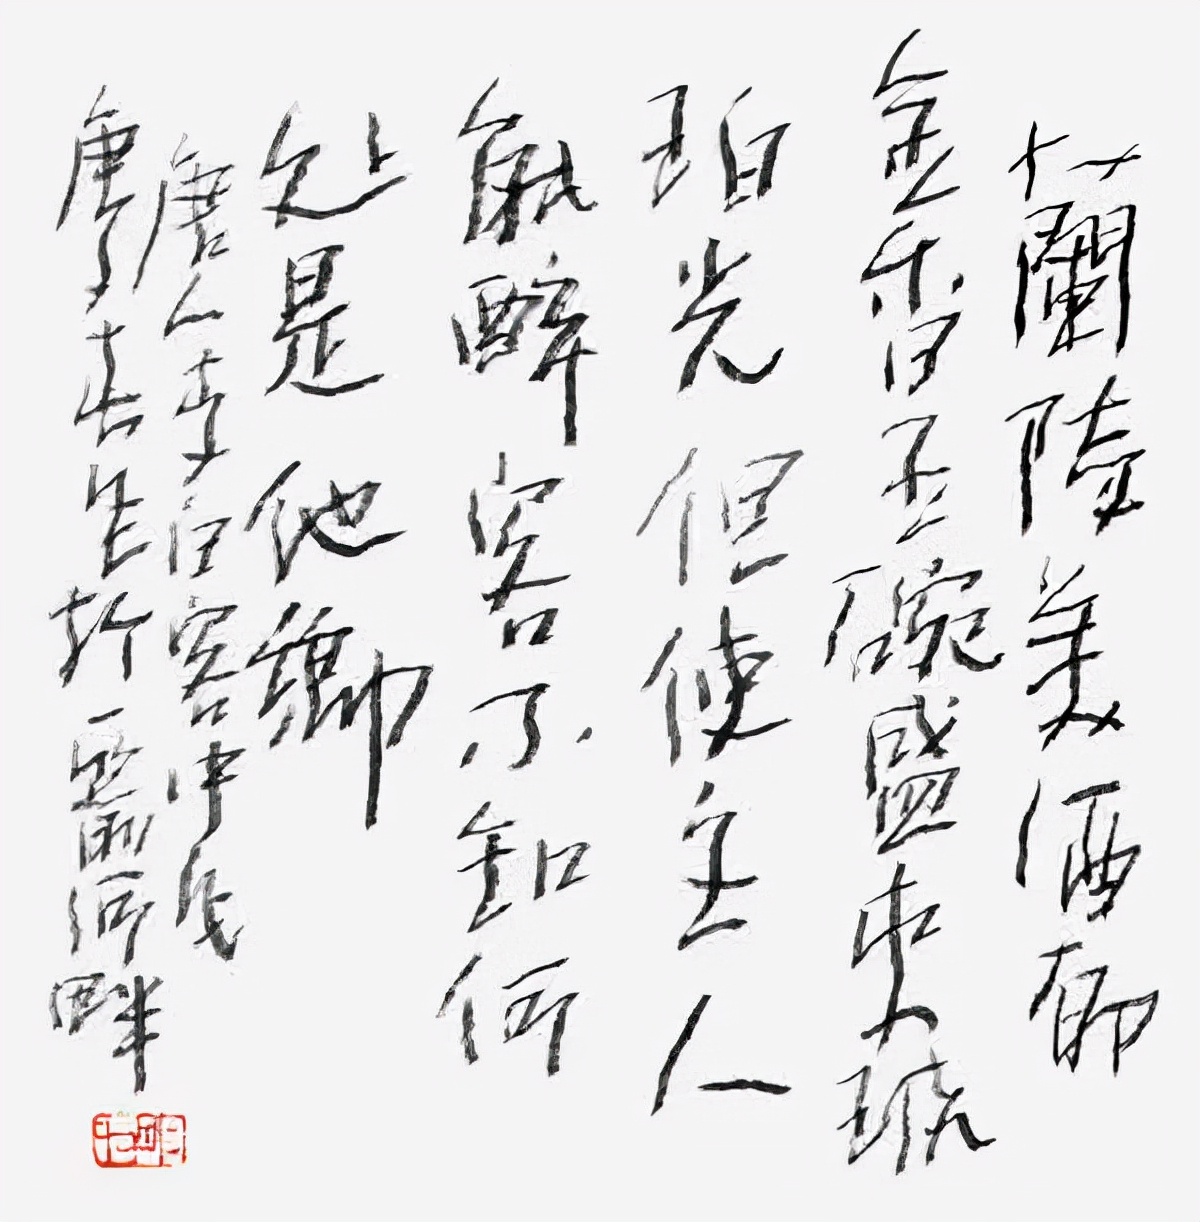 蘭陵美酒郁
金香玉碗盛来琥
珀光但使主人
能醉客不知何
处是他鄉
唐人李白客中
庚子春 於 河畔